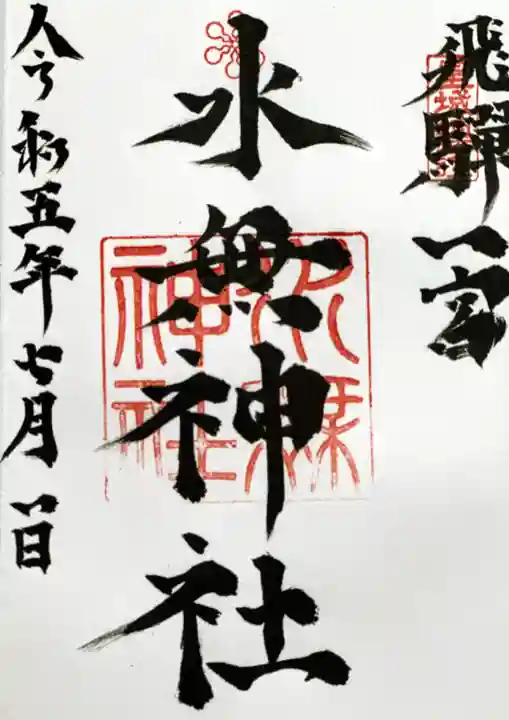 飛驒一宮
水無神社
令和五年七月八日
水無
神社